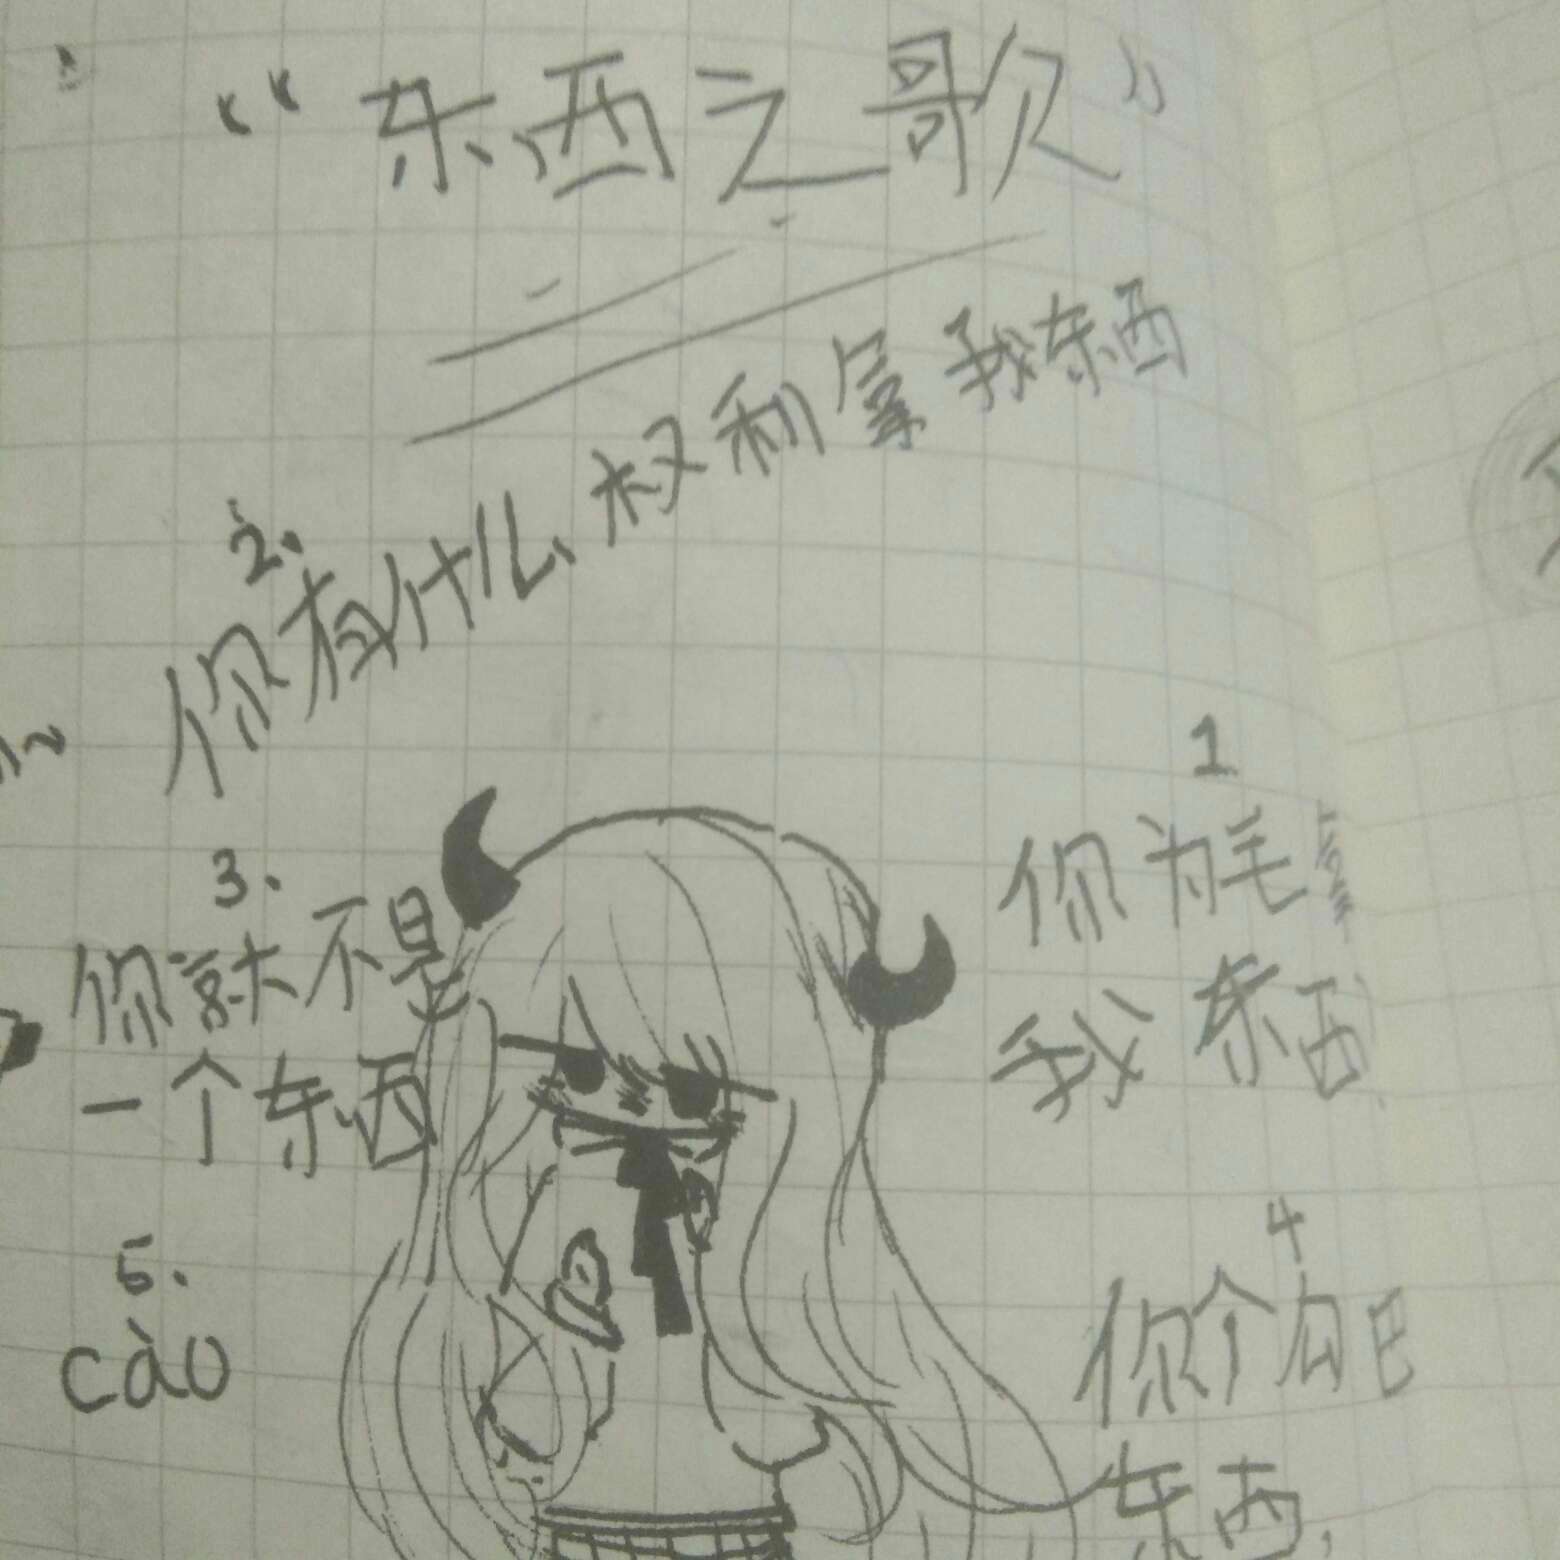 “东西之歌”
2.
你有什么权利拿我东西
1
你为毛拿
我东西
3.
你就不是
一个东西
4
你个勾巴
东西.
5.
cào